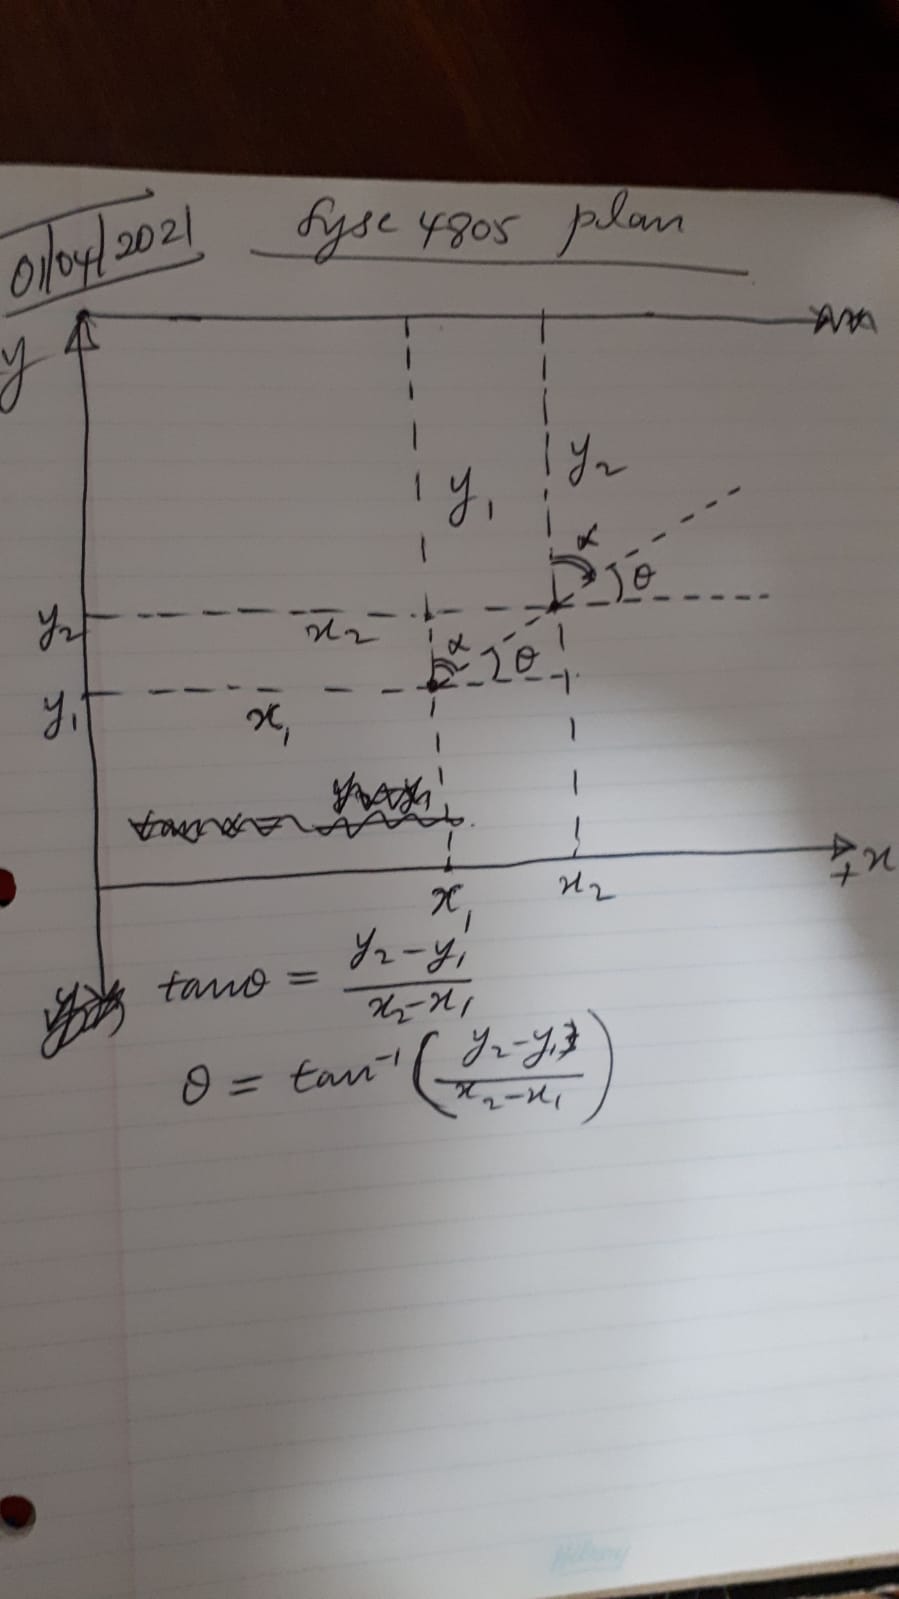 01/04/2021
Sysc 4805 plan
y
y₁
y₂
α
θ
y₂
x₂
α
θ
y₁
x₁
+x
x₁
x₂
tanθ = (y₂-y₁)/(x₂-x₁)
θ = tan⁻¹((y₂-y₁)/(x₂-x₁))